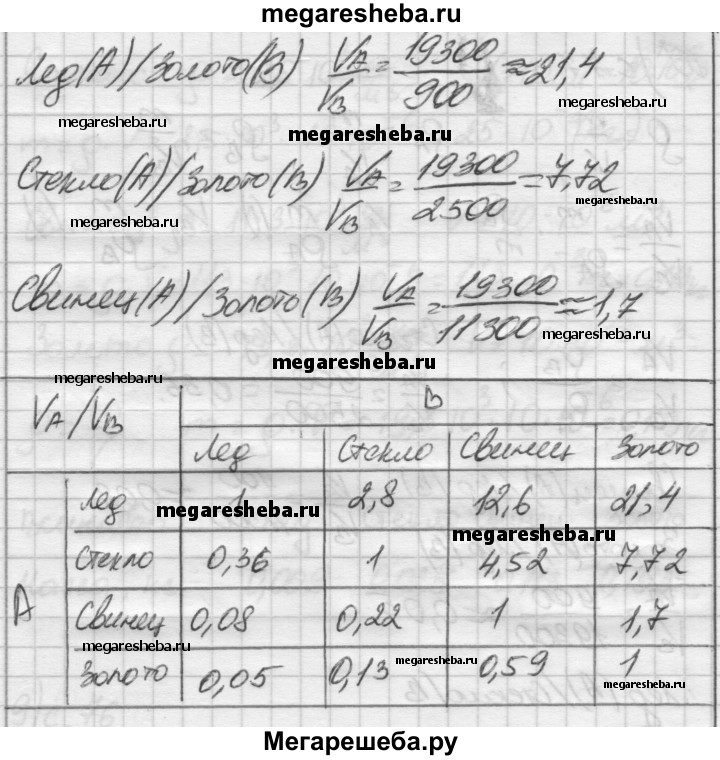 megaresheba.ru
Лед(A)/Золото(B) V_A/V_B = 19300/900 ≈ 21,4
megaresheba.ru
megaresheba.ru
megaresheba.ru
Стекло(A)/Золото(B) V_A/V_B = 19300/2500 = 7,72
megaresheba.ru
megaresheba.ru
Свинец(A)/Золото(B) V_A/V_B = 19300/11300 ≈ 1,7
megaresheba.ru
megaresheba.ru
megaresheba.ru
V_A/V_B B
Лед Стекло Свинец Золото
Лед 1 2,8 12,6 21,4
megaresheba.ru
megaresheba.ru
Стекло 0,36 1 4,52 7,72
A Свинец 0,08 0,22 1 1,7
megaresheba.ru
Золото 0,05 0,13 0,59 1
megaresheba.ru
megaresheba.ru
Мегарешеба.ру